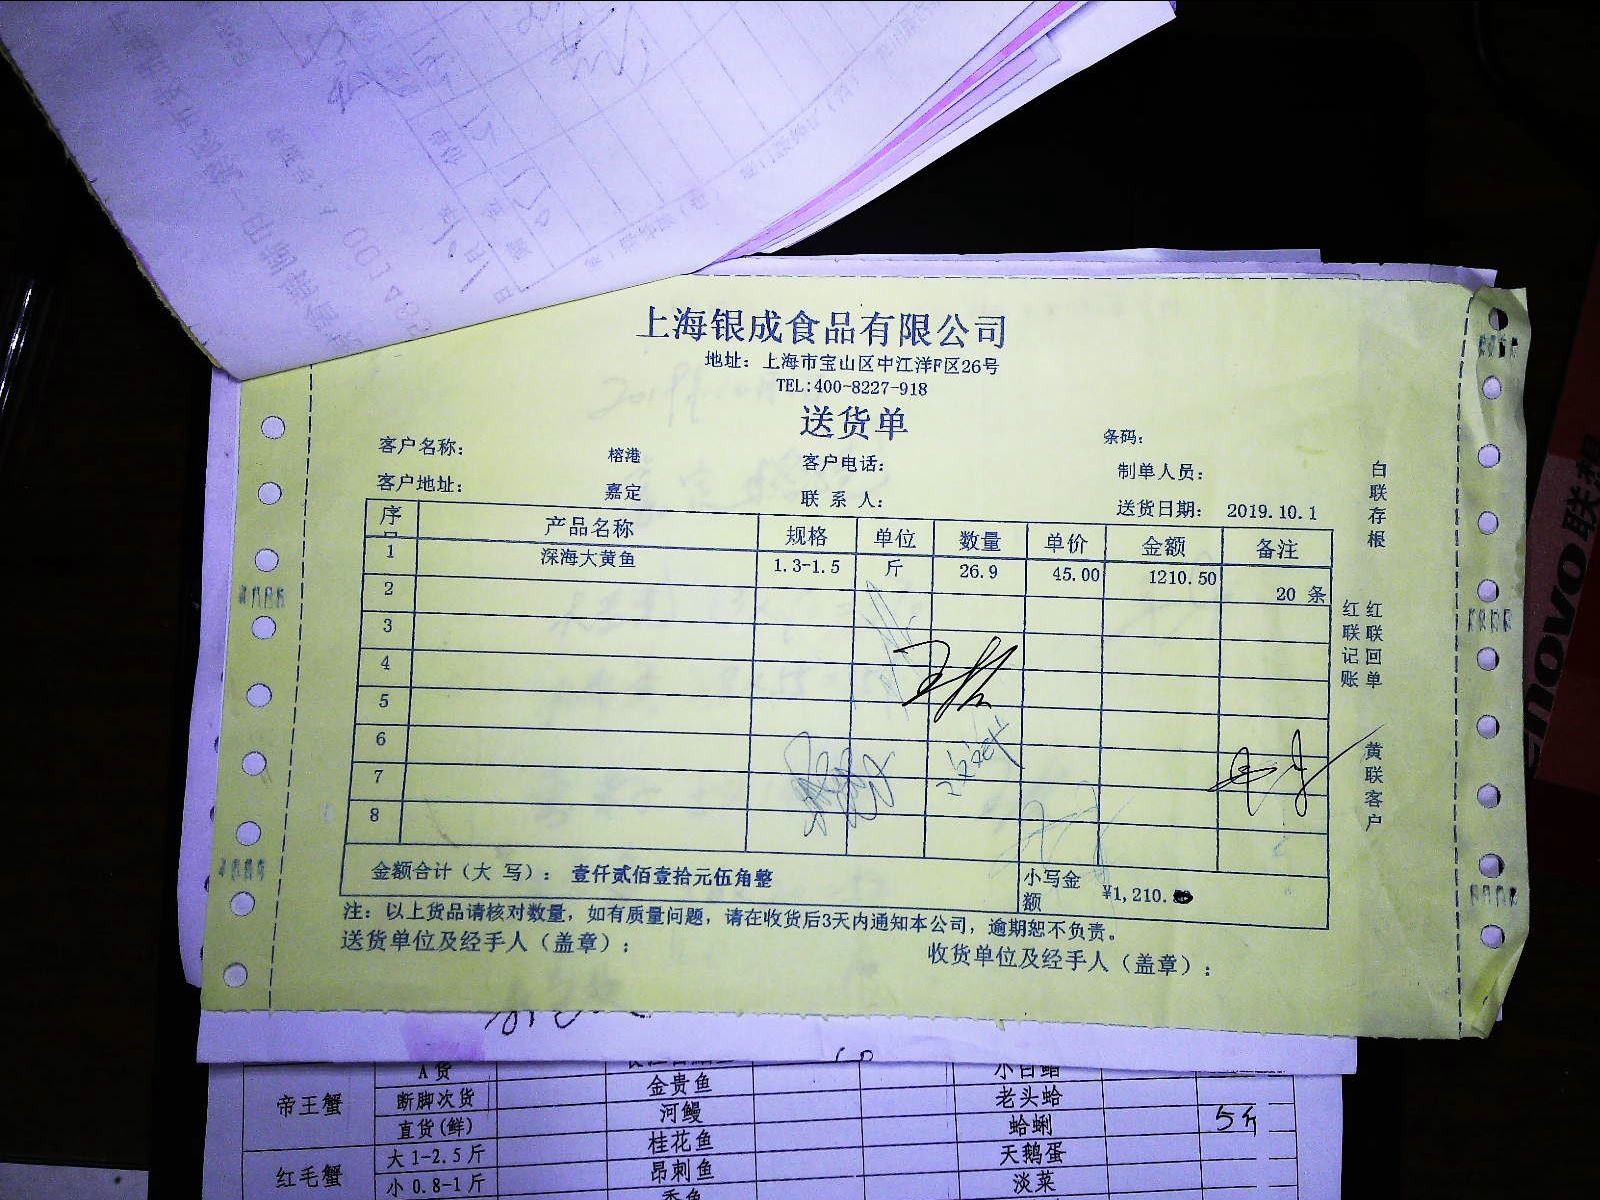 上海银成食品有限公司
地址：上海市宝山区中江洋F区26号
TEL:400-8227-918
送货单
客户名称： 榕港 客户电话： 条码：
客户地址： 嘉定 联系人： 制单人员：
送货日期： 2019.10.1
序 产品名称 规格 单位 数量 单价 金额 备注
1 深海大黄鱼 1.3-1.5 斤 26.9 45.00 1210.50 20 条
2
3
4
5
6
7
8
金额合计（大 写）： 壹仟贰佰壹拾元伍角整 小写金额 ¥1,210.
注：以上货品请核对数量，如有质量问题，请在收货后3天内通知本公司，逾期恕不负责。
送货单位及经手人（盖章）： 收货单位及经手人（盖章）：
白联存根
红联回单
红联记账
黄联客户
lenovo联想
A货
帝王蟹 断脚次货 金贵鱼 老头蛤
直货(鲜) 河鳗 蛤蜊 5斤
红毛蟹 大1-2.5斤 桂花鱼 天鹅蛋
小0.8-1斤 昂刺鱼 淡菜